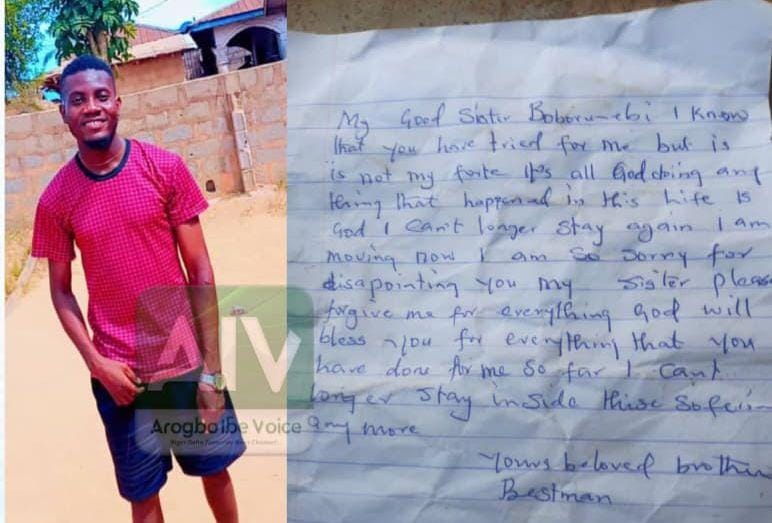 My Good Sister Boborumebi I Know
that you have tried for me but is
is not my forte It's all God doing any
thing that happened in this Life Is
God I Can't longer stay again I am
moving now I am so sorry for
disapointing you my sister please
forgive me for everything God will
bless you for everything that you
have done for me so far I Can't
longer stay inside thise
any more
Yours beloved brother
Bestman
AIV
Arogbo Ibe Voice